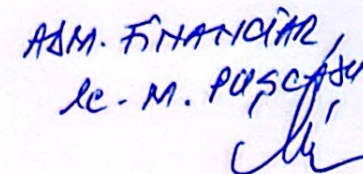 ADM. FINANCIAR,
ec. M. PUȘCAȘU